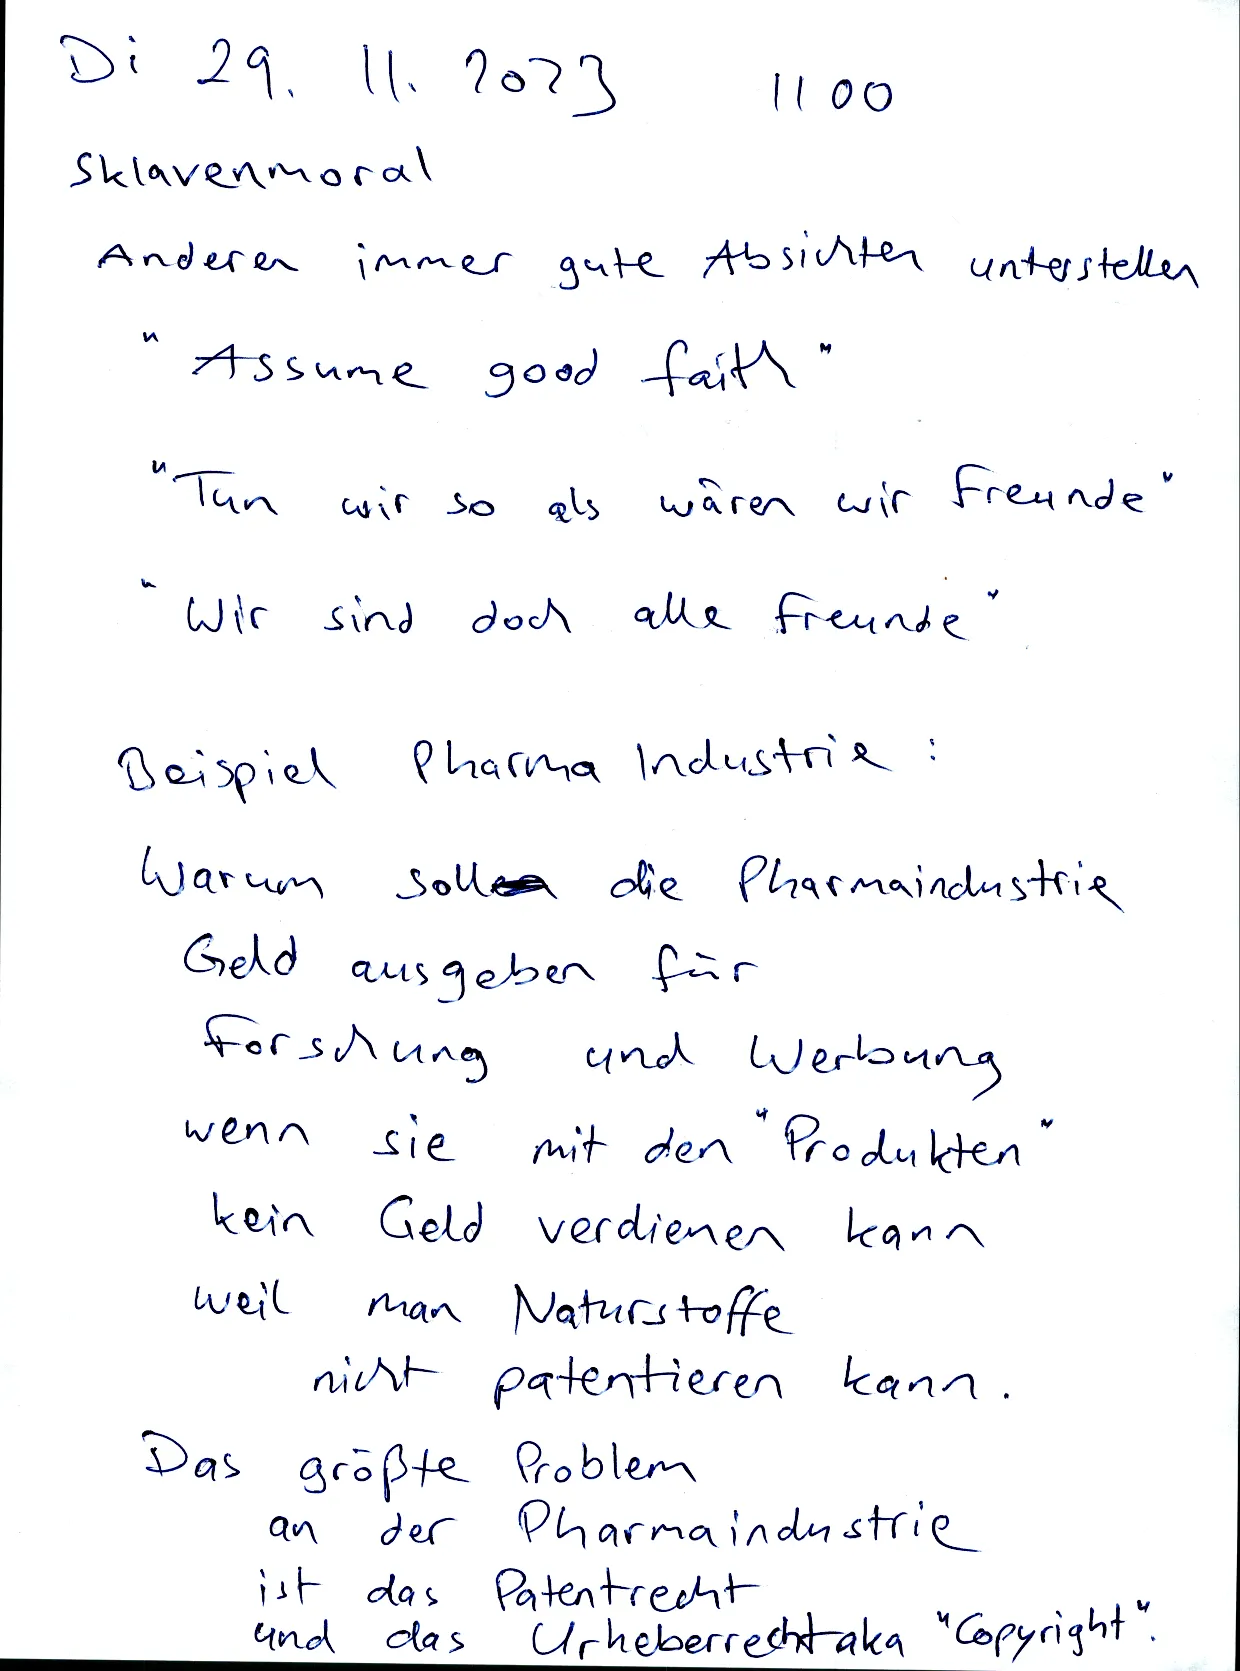 Di 29. 11. 2023 1100
Sklavenmoral
Anderen immer gute Absichten unterstellen
"Assume good faith"
"Tun wir so als wären wir Freunde"
"Wir sind doch alle Freunde"
Beispiel Pharma Industrie:
Warum soll die Pharmaindustrie
Geld ausgeben für
Forschung und Werbung
wenn sie mit den "Produkten"
kein Geld verdienen kann
weil man Naturstoffe
nicht patentieren kann.
Das größte Problem
an der Pharmaindustrie
ist das Patentrecht
und das Urheberrecht aka "Copyright".